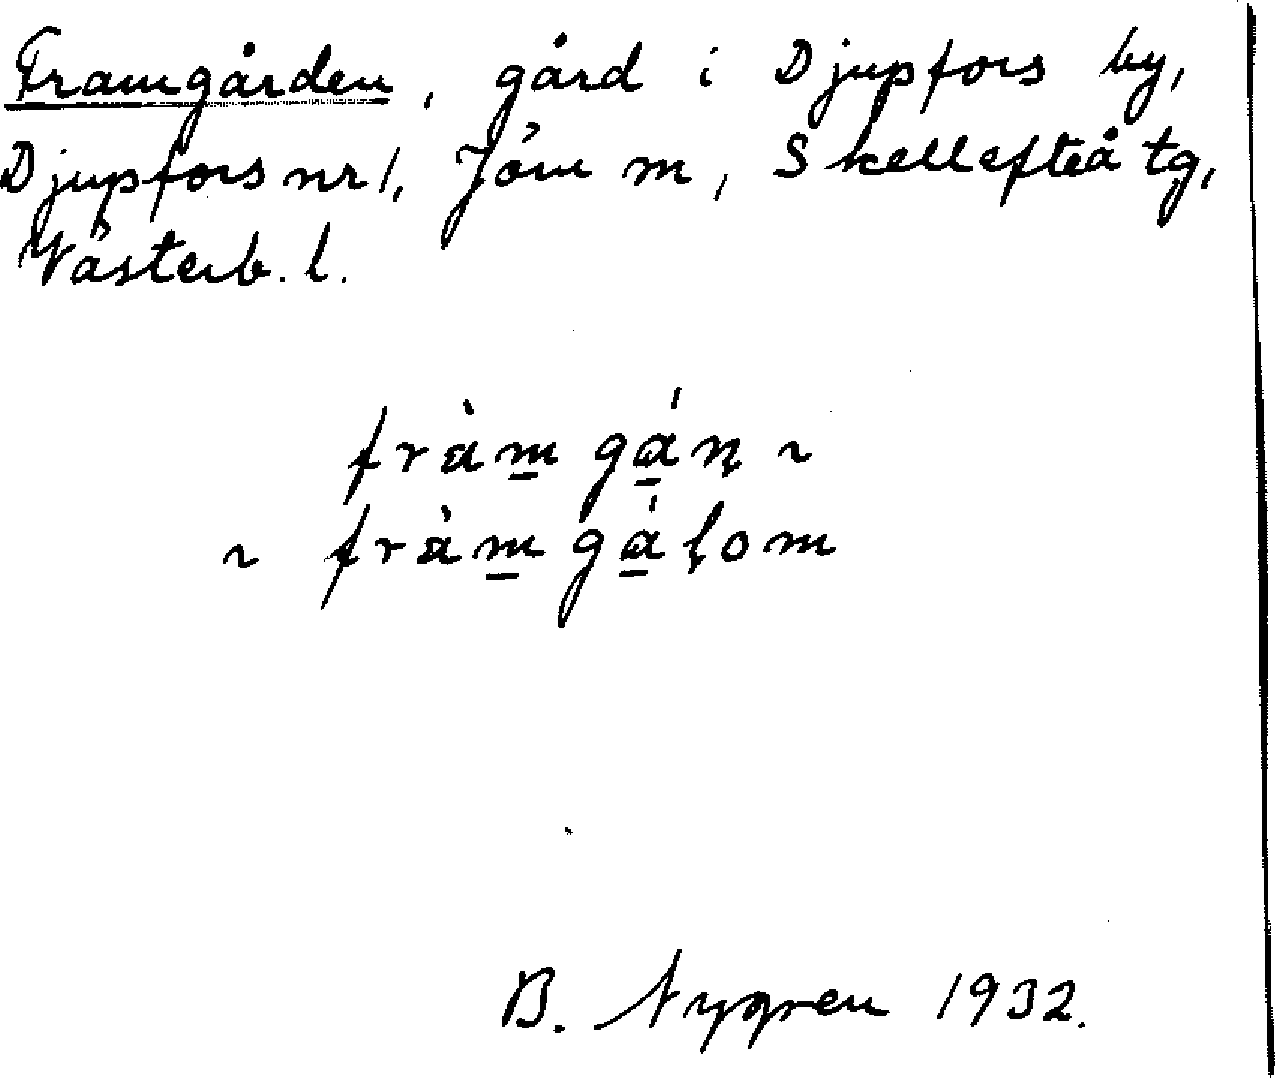 Framgården, gård i Djupfors by,
Djupfors nr 1, Jörn m, Skellefteå tg,
Västerb. l.
fràm̱ gá̱ṇ ~
~ fràm̱ gá̱ḷom
B. Nygren 1932.